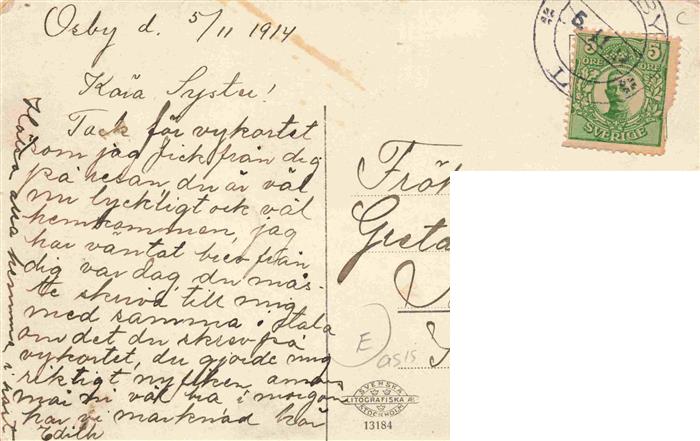 Osby d. 5/11 1914
Kära Syster!
Tack för vykortet
som jag fick från dig
på resan, du är väl
nu lyckligt och väl
hemkommen, jag
har väntat brev från
dig var dag, du mås-
te skriva till mig
med samma i tala
om det du skrev på
vykortet, du gjorde mig
riktigt nyfiken, annars
mår ni väl bra i morgon
har vi marknad här
Edith
Hälsa alla hemma i
5 ÖRE 5 ÖRE
SVERIGE
Frö
Greta
E
asis
SVENSKA
LITOGRAFISKA AB
STOCKHOLM
13184
C